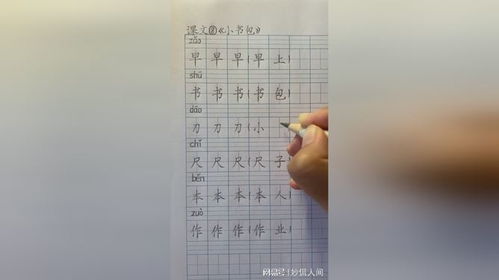 课文⑧《小书包》
zǎo
早 早 早(早 上)
shū
书 书 书(书 包)
dāo
刀 刀 刀(小
chǐ
尺 尺 尺(尺 子)
běn
本 本 本(本 人)
zuò
作 作 作(作 业)
搜狐号@妙侃人间